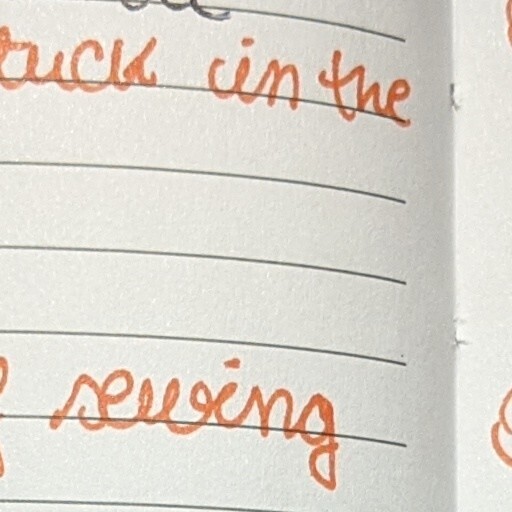 tuck in the
sewing